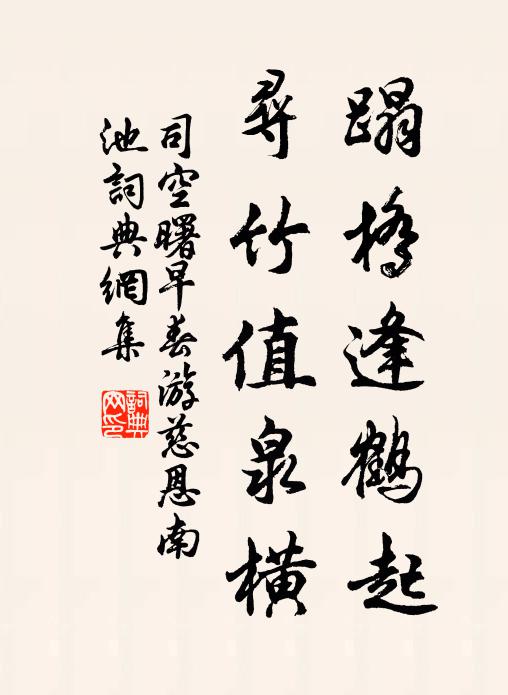 蹋橋逢鶴起
尋竹值泉橫
司空曙早春游慈恩南
池詞典網集
詞典
网印